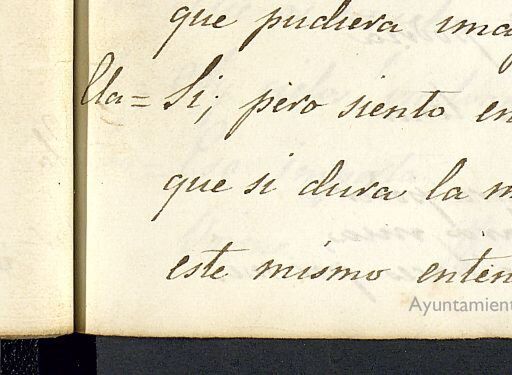 que pudiera ima
Ella= Si; pero siento en
que si dura la m
este mismo enten
Ayuntamient